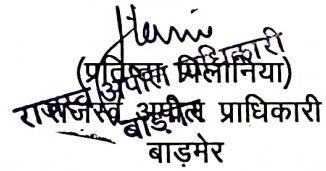 (प्रतिष्ठा पिलानिया)
राजस्व अपील प्राधिकारी
बाड़मेर
राजस्व अपील अधिकारी
बाड़मेर